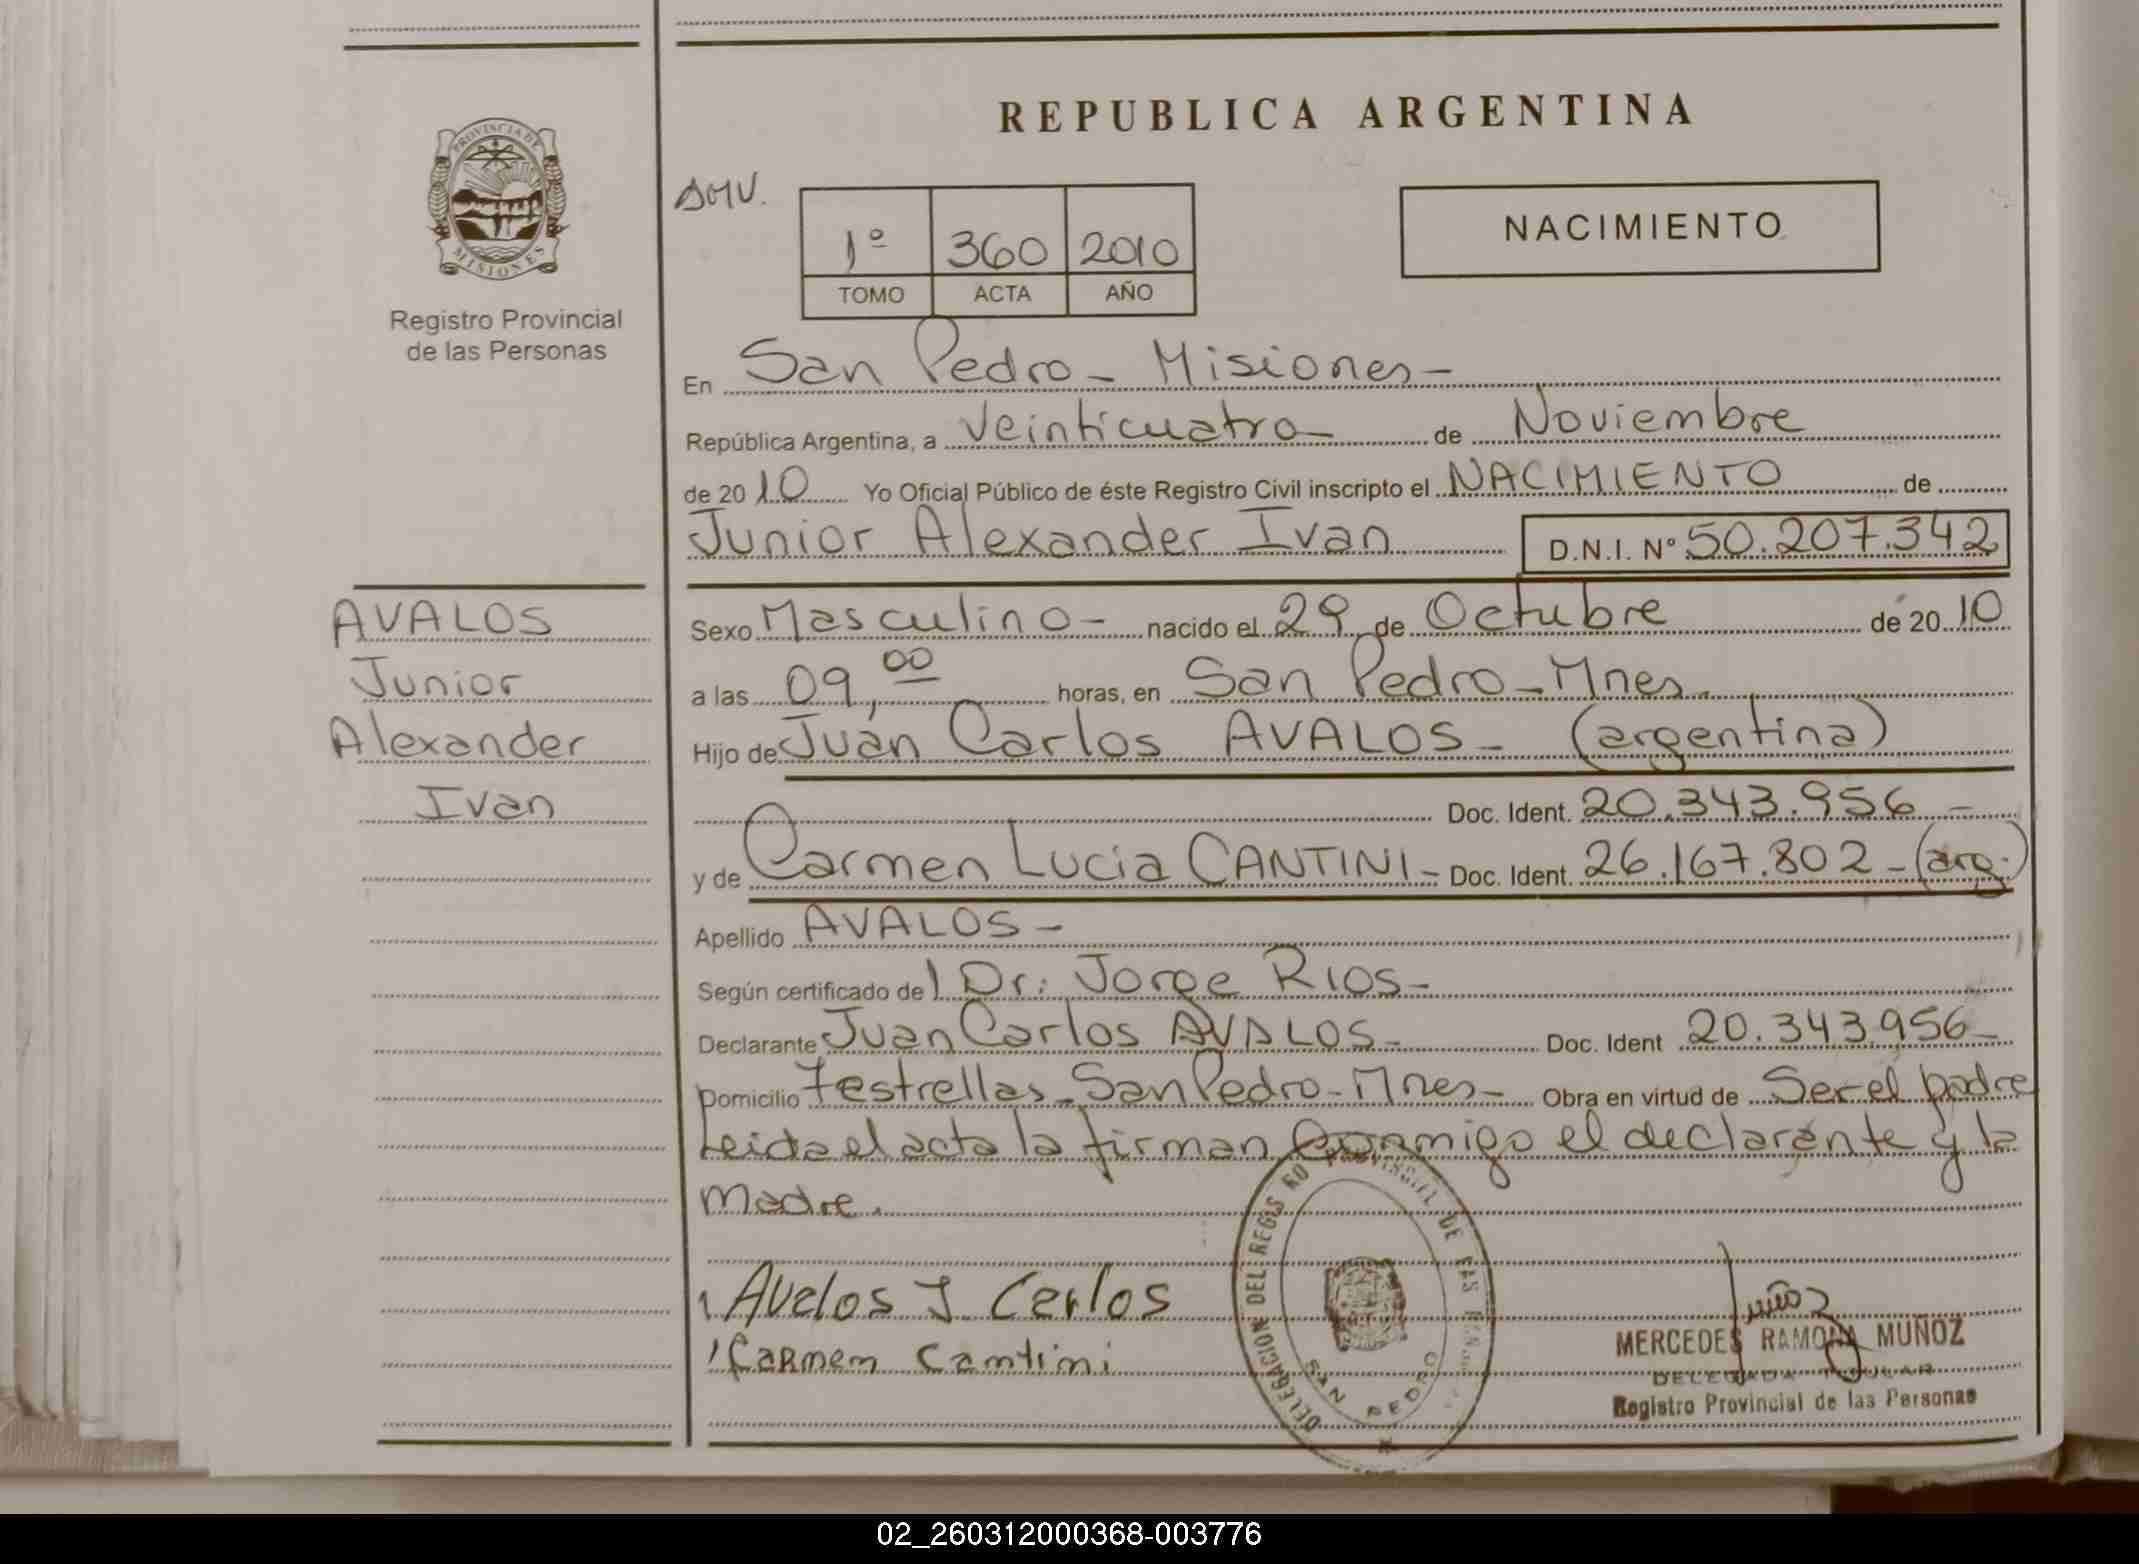 REPUBLICA ARGENTINA
PROVINCIA DE
MISIONES
Registro Provincial
de las Personas
1º 360 2010
TOMO ACTA AÑO
NACIMIENTO
En San Pedro - Misiones -
República Argentina, a Veinticuatro de Noviembre
de 2010 Yo Oficial Público de éste Registro Civil inscripto el NACIMIENTO de
Junior Alexander Ivan D.N.I. Nº 50.207.342
AVALOS
Junior
Alexander
Ivan
Sexo Masculino - nacido el 29 de Octubre de 2010
a las 09,00 horas, en San Pedro - Mnes.
Hijo de Juan Carlos AVALOS - (argentina)
Doc. Ident. 20.343.956 -
y de Carmen Lucia CANTINI - Doc. Ident. 26.167.802 - (arg.)
Apellido AVALOS -
Según certificado del Dr: Jorge RIOS -
Declarante Juan Carlos AVALOS - Doc. Ident 20.343.956 -
Domicilio 7 estrellas - San Pedro - Mnes - Obra en virtud de Ser el padre
Leida el acta la firman conmigo el declarante y la
madre.
Avelos J. Cerlos
Carmen Cantini
DELEGACION DEL REGIS RO PROVINCIAL DE LAS
SAN PEDRO
MERCEDES RAMONA MUÑOZ
DELEGADA TITULAR
Registro Provincial de las Personas
02_260312000368-003776